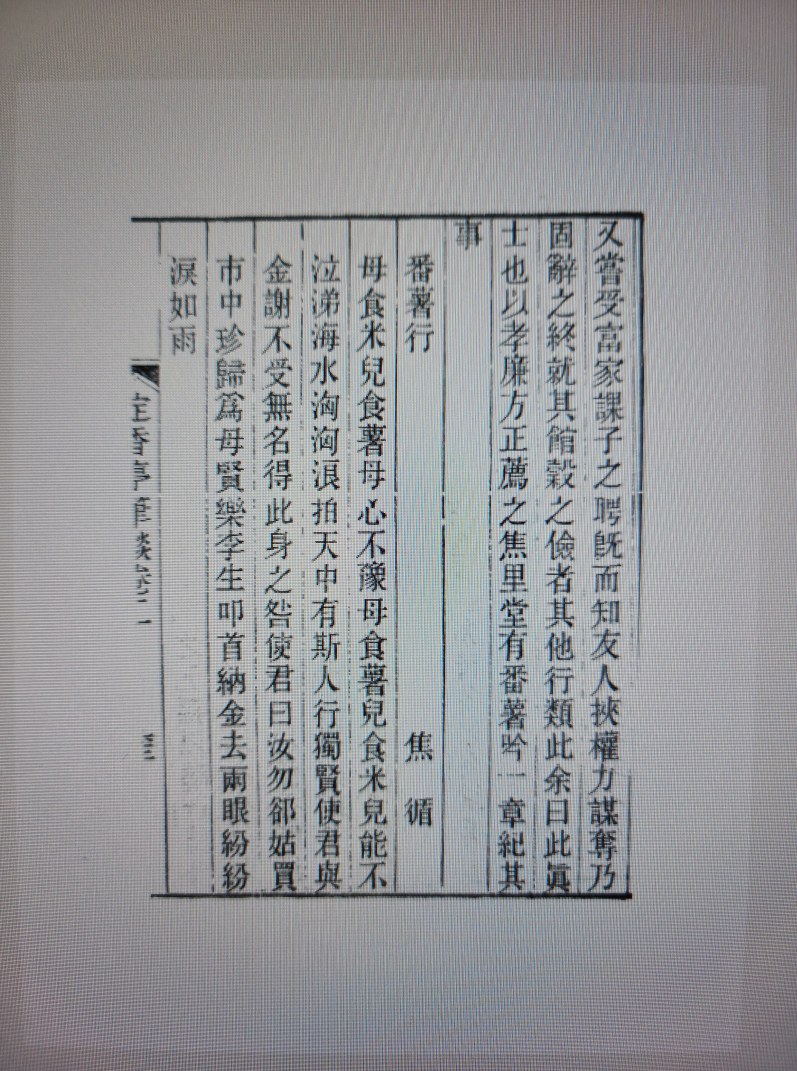 又嘗受富家課子之聘旣而知友人挾權力謀奪乃
固辭之終就其館穀之儉者其他行類此余曰此眞
士也以孝廉方正薦之焦里堂有番薯吟一章紀其
事
番薯行 焦循
母食米兒食薯母心不豫母食薯兒食米兒能不
泣涕海水洶洶浪拍天中有斯人行獨賢使君與
金謝不受無名得此身之咎使君曰汝勿郤姑買
市中珍歸爲母賢樂李生叩首納金去兩眼紛紛
淚如雨
定香亭筆談卷二